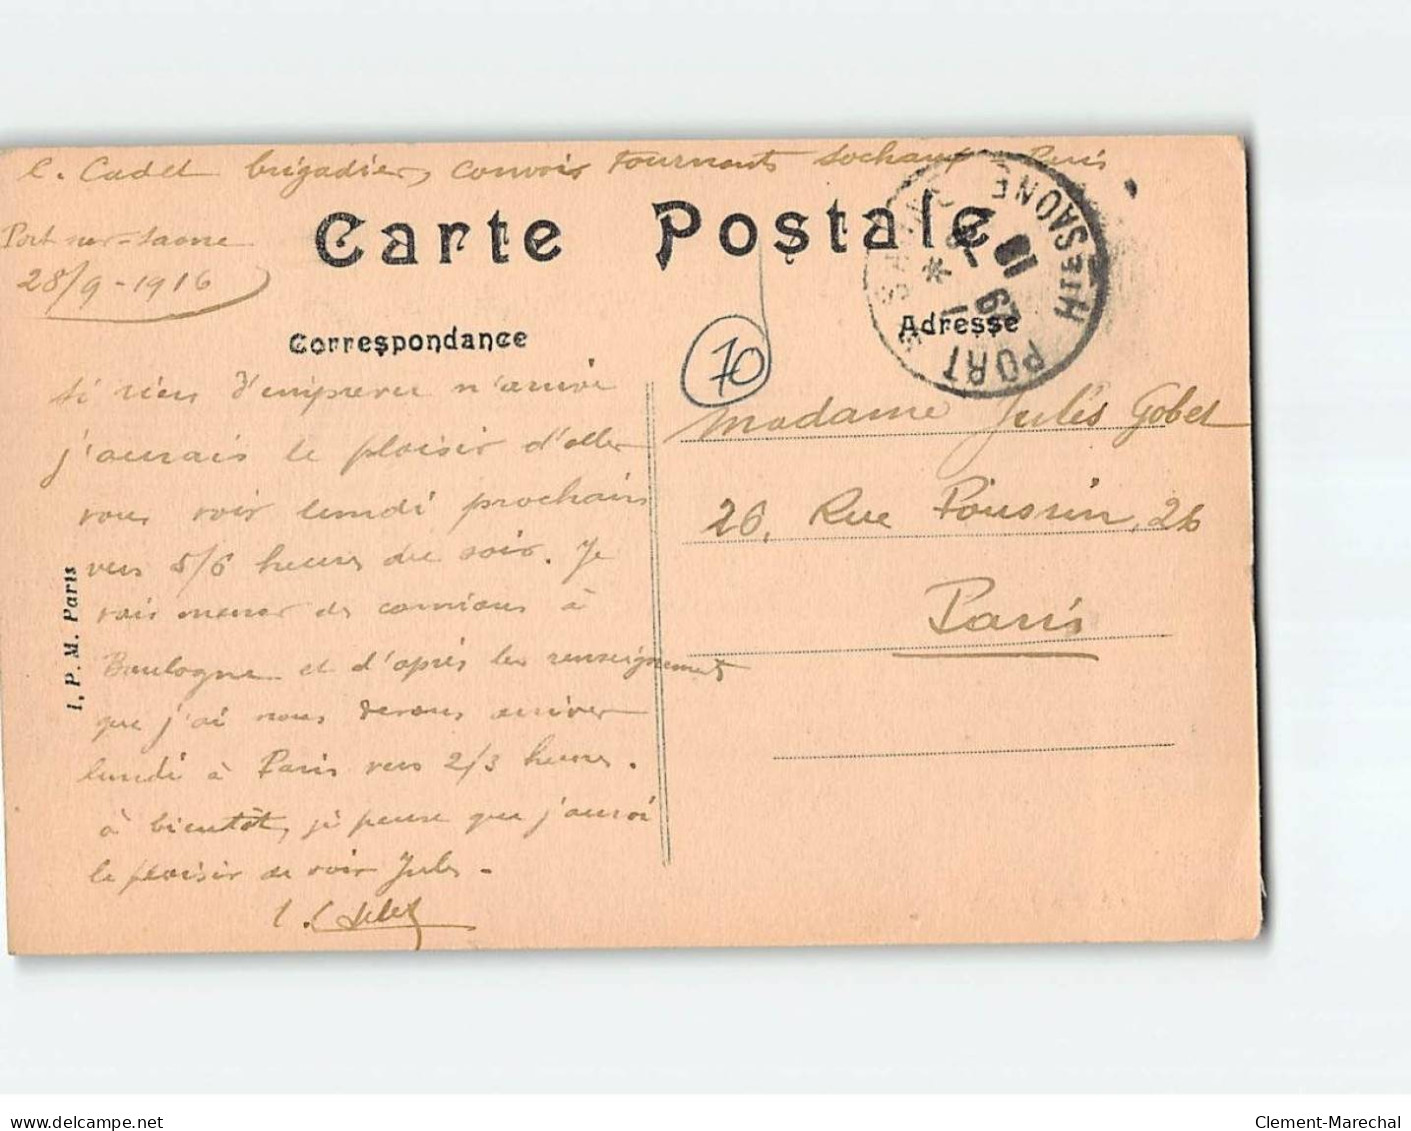 C. Cadet brigadier, convois Tournants Sochaux - Paris
Port sur-Saone
28/9-1916
Carte Postale
Correspondance
Adresse
PORT S SAONE
29
1
16
Hte SAONE
70
si rien d'imprevu n'arrive
j'aurais le plaisir d'aller
vous voir lundi prochain
vers 5/6 heures du soir. Je
vais mener des camions à
Boulogne et d'après les renseignements
que j'ai nous devons arriver
lundi à Paris vers 2/3 heures.
à bientôt, je pense que j'aurai
le plaisir de voir Jules -
Madame Jules Gobet
26, Rue Poussin, 26
Paris
I. P. M. Paris
www.delcampe.net
Clement-Marechal